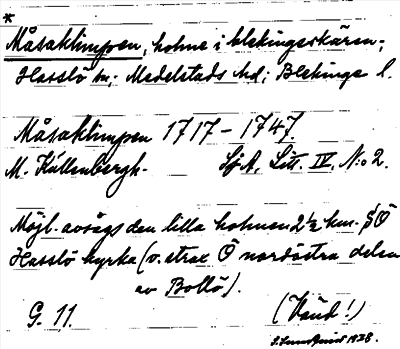 *
Måsaklimpen, holme i blekingeskären;
Hasslö sn; Medelstads hd; Blekinge l.
Måsaklimpen 1717–1747.
M. Källenbergh. SjA, Litt. IV, N:o 2.
Möjl. avsågs den lilla holmen 2½ km. SÖ
Hasslö kyrka (v. strax Ö nordöstra delen
av Bollö).
G. 11. (Vänd!)
1928.